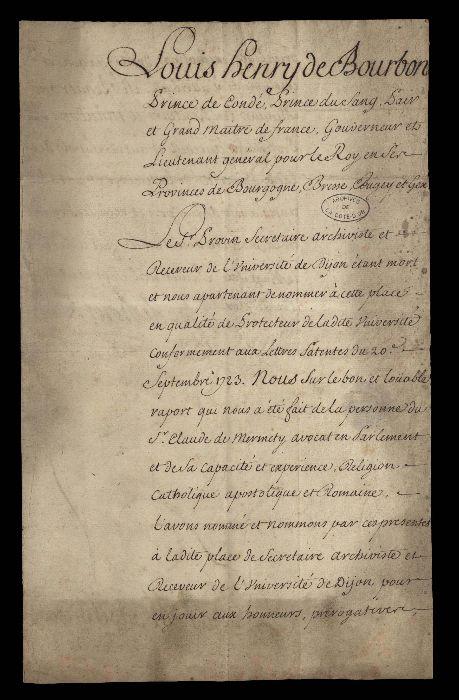 Louis henry de Bourbon
Prince de Condé, Prince du sang, Pair
et Grand Maître de france, Gouverneur et
Lieutenant général pour le Roy en Ses
Provinces de Bourgogne, Bresse, Bugey et Gex
ARCHIVES
DE
LA COTE-D'OR
Le Sr. Provin Secretaire archiviste et
Receveur de l'Université de Dijon étant mort
et nous apartenant de nommer à cette place
en qualité de Protecteur de ladite Université
Conformement aux Lettres Patentes du 20.e
Septembre 1723. Nous Sur le bon et louable
raport qui nous a été fait de la personne du
Sr. Claude de Mermety, avocat en Parlement
et de Sa Capacité et experience, Religion
Catholique apostolique et Romaine,
l'avons nommé et nommons par ces presentes
à ladite place de Secretaire archiviste et
Receveur de l'Université de Dijon pour
en jouir aux honneurs, prérogatives,